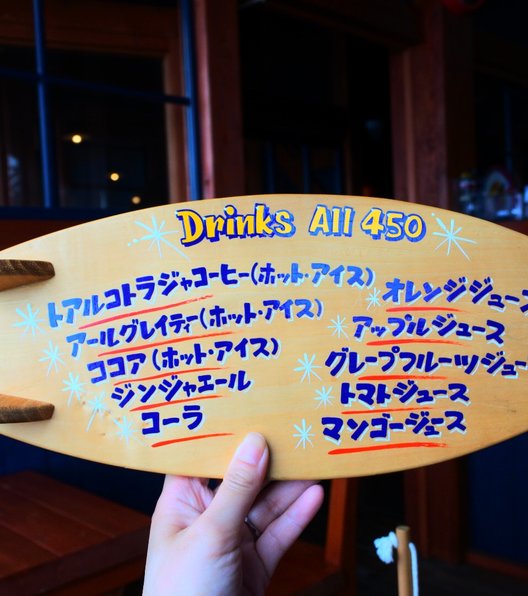 Drinks All 450
トアルコトラジャコーヒー(ホット・アイス)
アールグレイティー(ホット・アイス)
ココア(ホット・アイス)
ジンジャエール
コーラ
オレンジジュース
アップルジュース
グレープフルーツジュー
トマトジュース
マンゴージュース